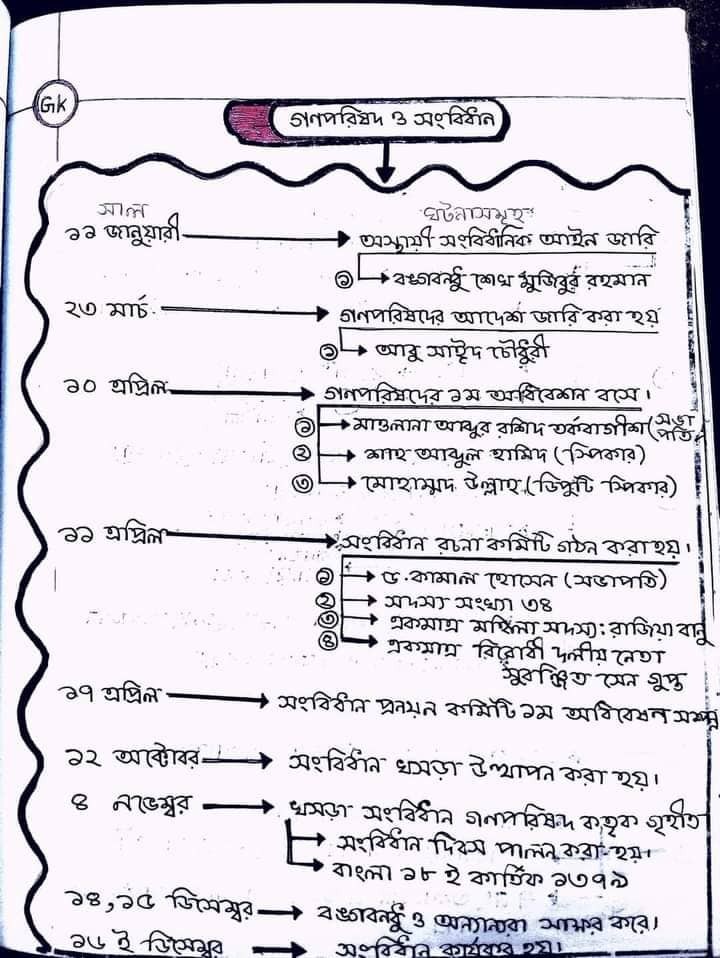 GK
গণপরিষদ ও সংবিধান
সাল
ঘটনাসমূহ
১১ জানুয়ারী
অস্থায়ী সংবিধানিক আইন জারি
১ বঙ্গবন্ধু শেখ মুজিবুর রহমান
২৩ মার্চ
গণপরিষদের আদেশ জারি করা হয়
১ আবু সাইদ চৌধুরী
১০ এপ্রিল
গণপরিষদের ১ম অধিবেশন বসে।
১ মাওলানা আব্দুর রশিদ তর্কবাগীশ (সভাপতি)
২ শাহ আব্দুল হামিদ (স্পিকার)
৩ মোহাম্মদ উল্লাহ (ডিপুটি স্পিকার)
১১ এপ্রিল
সংবিধান রচনা কমিটি গঠন করা হয়।
১ ড. কামাল হোসেন (সভাপতি)
২ সদস্য সংখ্যা ৩৪
৩ একমাত্র মহিলা সদস্য: রাজিয়া বানু
৪ একমাত্র বিরোধী দলীয় নেতা
সুরঞ্জিত সেন গুপ্ত
১৭ এপ্রিল
সংবিধান প্রনয়ন কমিটি ১ম অধিবেশন সম্পন্ন
১২ অক্টোবর
সংবিধান খসড়া উত্থাপন করা হয়।
৪ নভেম্বর
খসড়া সংবিধান গণপরিষদ কতৃক গৃহীত
সংবিধান দিবস পালন করা হয়।
বাংলা ১৮ ই কার্তিক ১৩৭৯
১৪,১৫ ডিসেম্বর
বঙ্গবন্ধু ও অন্যান্যরা সাক্ষর করে।
১৬ ই ডিসেম্বর
সংবিধান কার্যকর হয়।